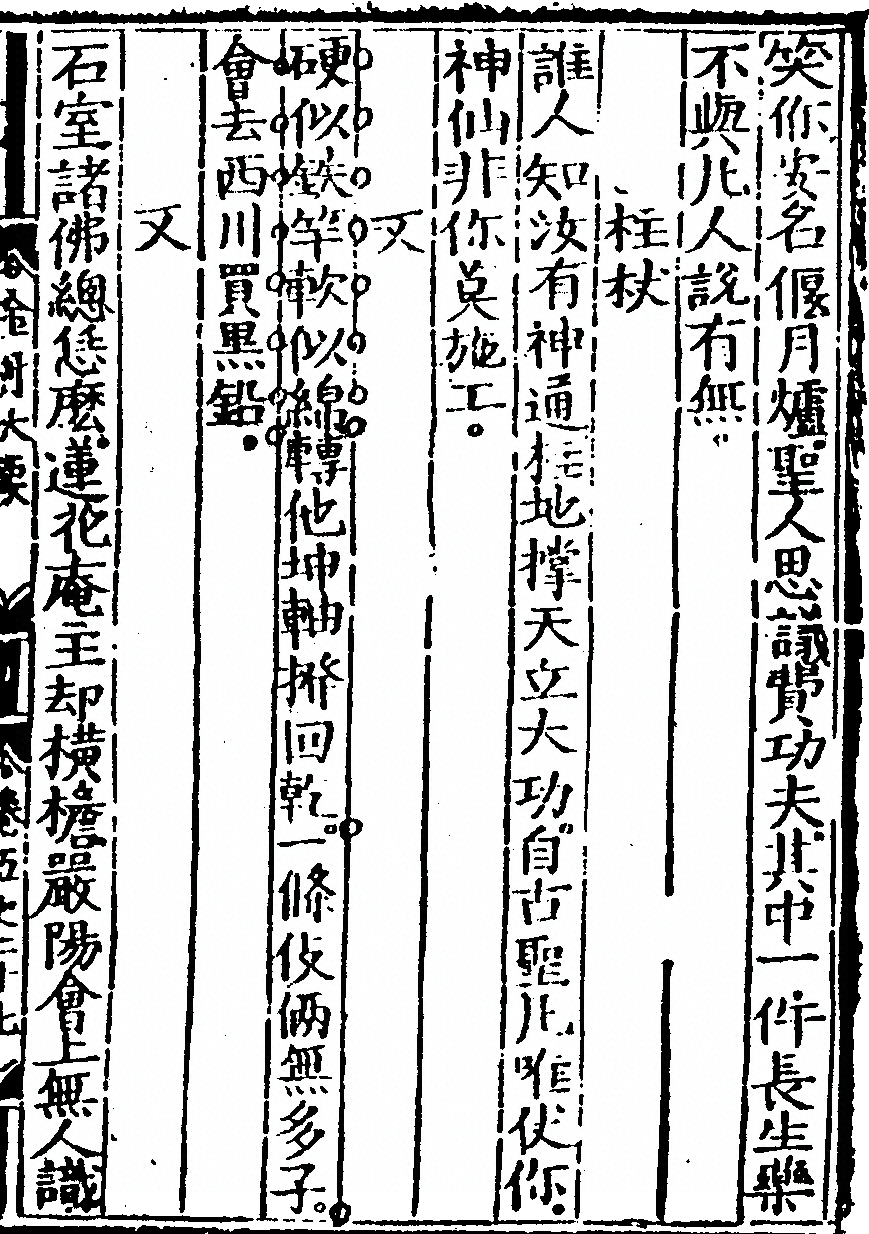 笑你安名偃月爐聖人思議費功夫其中一件長生藥
不與凡人說有無
柱杖
誰人知汝有神通柱地撑天立大功自古聖凡唯仗你
神仙非你莫施工
又
硬似鉄竿軟似綿轉他坤軸撥回乾一條伎倆無多子
會去西川買黒鉛
又
石室諸佛總恁麽蓮花庵主却横檐嚴陽會上無人識